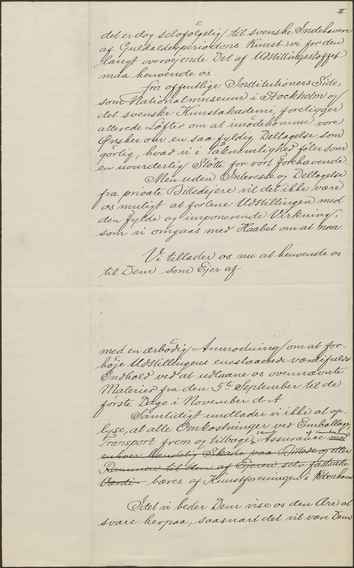 II
det er dog selvfølgelig til svenske Indehavere
af Guldalderperiodens Kunst vi for den
langt overvejende Del af Udstillingsstoffet
maa henvende os.
fra offentlige Institutioners Side,
som Nationalmuseum i Stockholm og
det svenske Kunstakademi, foreligger
allerede Løfter om at imødekomme vore
Ønsker om en saa fyldig Deltagelse som
gørlig, hvad vi i Taknemlighed føler som
en uvurderlig Støtte for vort forehavende.
Men uden Interesse og Deltagelse
fra private Billedejere vil det ikke være
os muligt at forlene Udstillingen med
den fylde og imponerende Virkning,
som vi omgaas med Haabet om at naa.
Vi tillader os nu at henvende os
til Dem som Ejer af
med en ærbødig Anmodning om at for-
høje Udstillingens enestaaende værdifulde
Indhold ved at udlaane os ovennævnte
Malerier fra den 5te September til de
første Dage i November d. A.
Samtidigt undlader vi ikke at op-
lyse, at alle Omkostninger ved Emballage,
Transport frem og tilbage, Assurance
bæres af Kunstforeningen i København
Idet vi beder Dem vise os den Ære at
svare herpaa, saasnart det vil van Dem